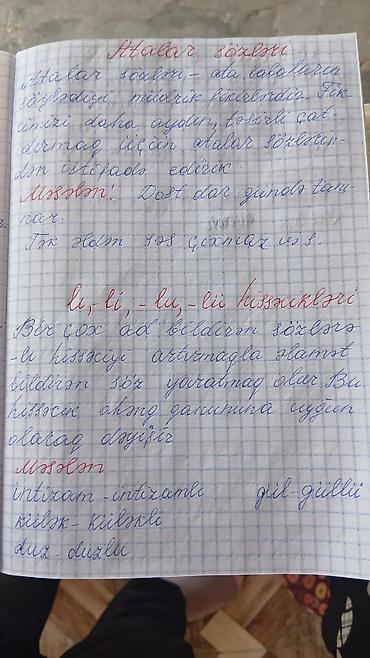 Atalar sözləri.
Atalar sözləri - ata babaların
söylədiyi müdrik fikirlərdir. Fik-
rimizi daha aydın, təsirli çat-
dırmaq üçün atalar sözlərin-
dən istifadə edirik
Məsələn! Dost dar gündə tanı-
nar.
Tək əldən səs çıxmaz və s.
lı, -li, -lu, -lü hissəcikləri
Bir çox ad bildirən sözlərə
-lı hissəciyi artırmaqla əlamət
bildirən söz yaratmaq olar. Bu
hissəcik ahəng qanununa uyğun
olaraq dəyişir
Məsələn
intizam - intizamlı gül - güllü
külək - küləkli
duz - duzlu